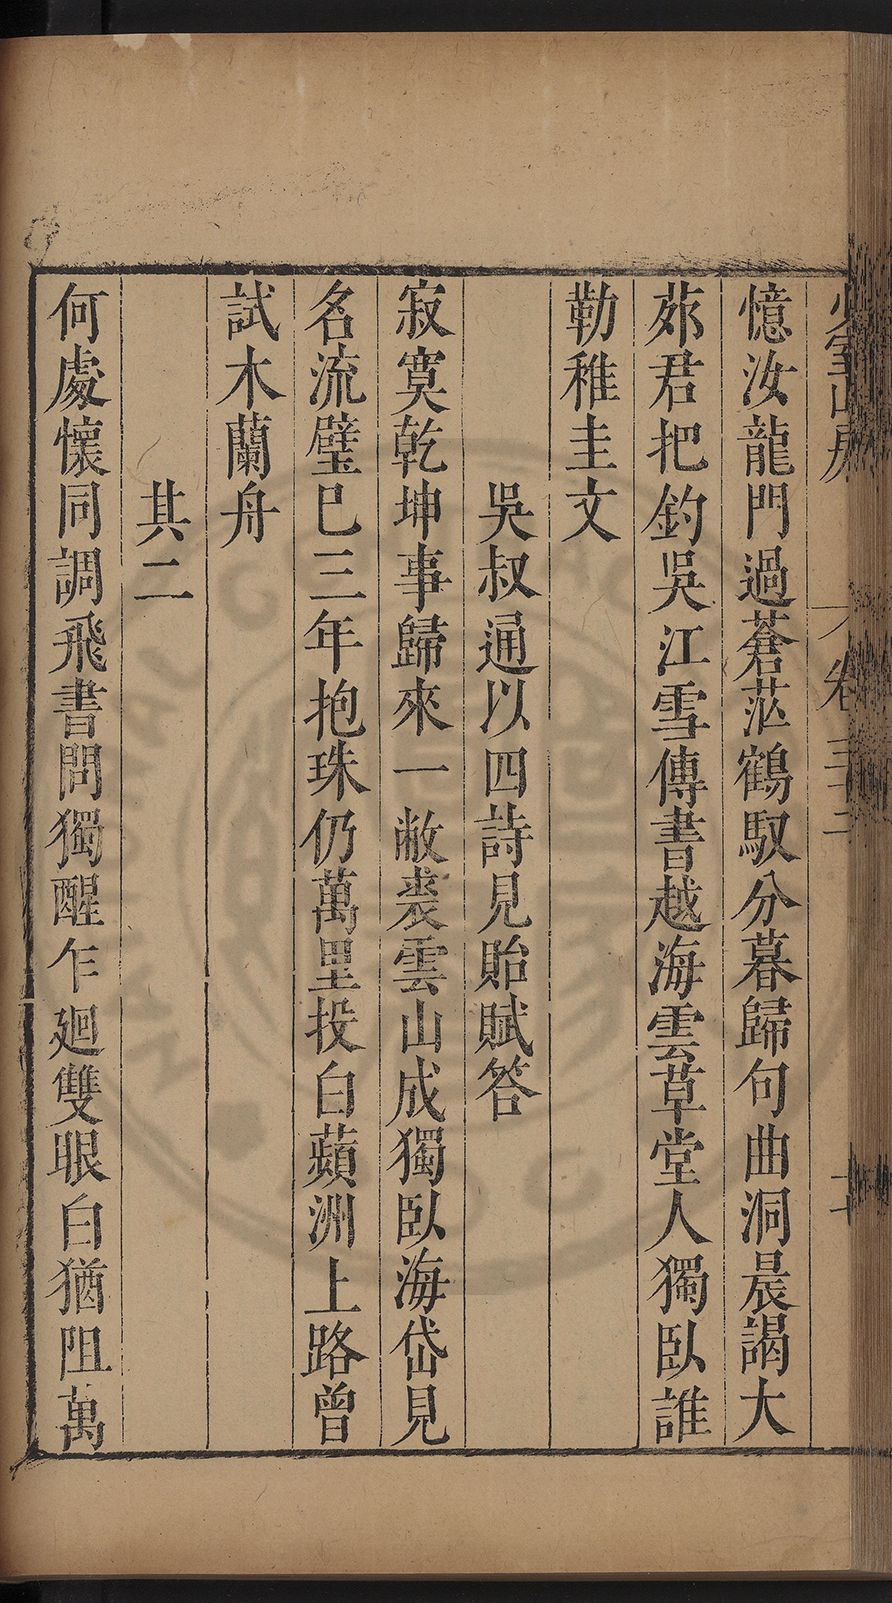 少室山房 卷三十二 二
憶汝龍門過蒼茫鶴馭分暮歸句曲洞晨謁大
茆君把釣吳江雪傳書越海雲草堂人獨臥誰
勒稚圭文
吳叔通以四詩見貽賦答
寂寞乾坤事歸來一敝裘雲山成獨臥海岱見
名流璧巳三年抱珠仍萬里投白蘋洲上路曾
試木蘭舟
其二
何處懷同調飛書問獨醒乍廻雙眼白猶阻萬